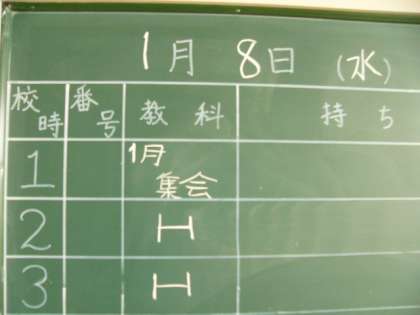 1月 8日 (水)
校時 番号 教科 持ち
1 1月集会
2 H
3 H